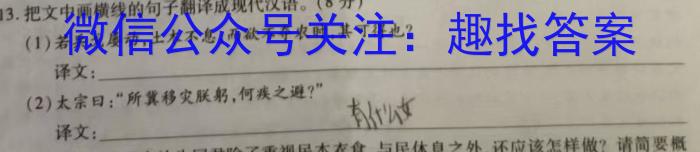 13.把文中画横线的句子翻译成现代汉语。(8分)
微信公众号关注：趣找答案
(1)若兵戈屡动，土木不息，而欲不夺农时，其可得也？
译文：
(2)太宗曰：“所冀移灾朕躬，何疾之避？”
译文：
重视民本衣食、与民休息之外，还应该怎样做？请简要概